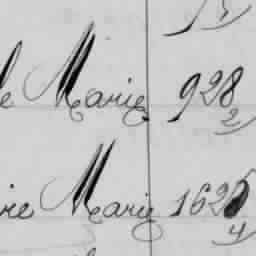 le Marie 928
2
ire Marie 162
4